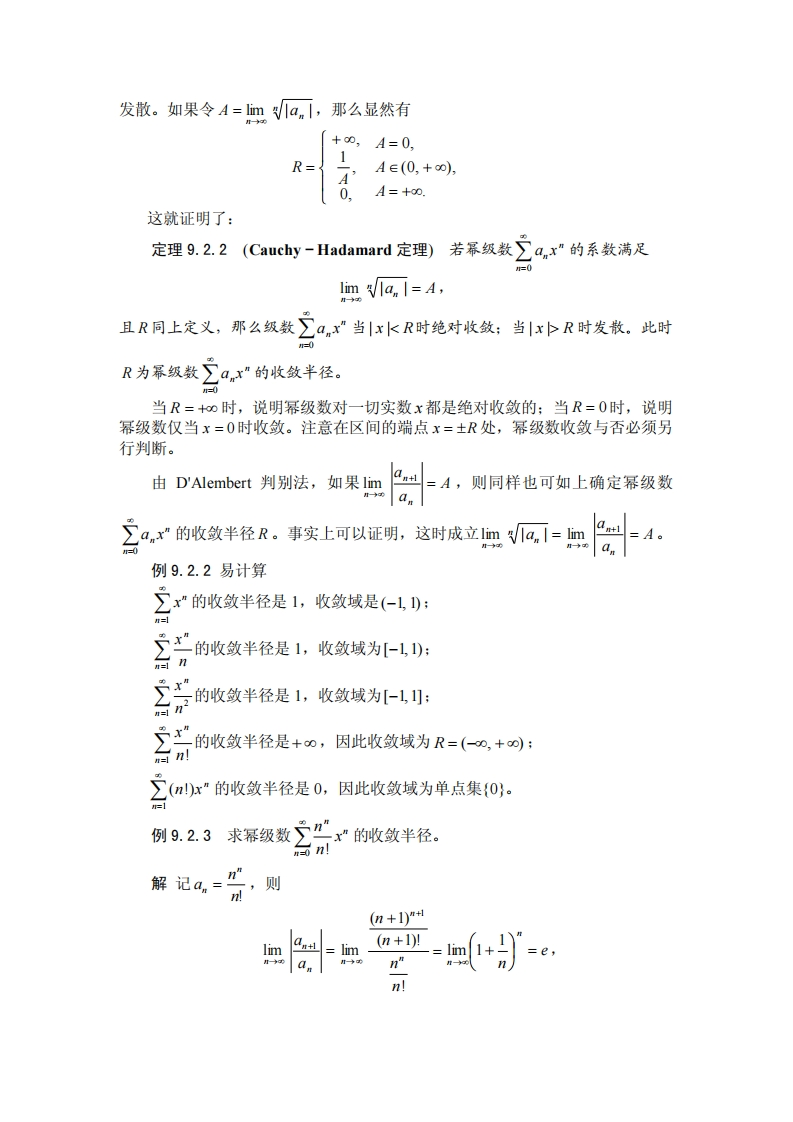 发散。如果令 A = lim_{n→∞} ⁿ√|aₙ|，那么显然有
R = { +∞, A = 0,
1/A, A ∈ (0, +∞),
0, A = +∞.
这就证明了：
定理 9.2.2 (Cauchy－Hadamard 定理) 若幂级数 ∑_{n=0}^{∞} aₙxⁿ 的系数满足
lim_{n→∞} ⁿ√|aₙ| = A，
且 R 同上定义，那么级数 ∑_{n=0}^{∞} aₙxⁿ 当 | x |< R 时绝对收敛；当 | x |> R 时发散。此时
R 为幂级数 ∑_{n=0}^{∞} aₙxⁿ 的收敛半径。
当 R = +∞ 时，说明幂级数对一切实数 x 都是绝对收敛的；当 R = 0 时，说明
幂级数仅当 x = 0 时收敛。注意在区间的端点 x = ±R 处，幂级数收敛与否必须另
行判断。
由 D'Alembert 判别法，如果 lim_{n→∞} |aₙ₊₁/aₙ| = A，则同样也可如上确定幂级数
∑_{n=0}^{∞} aₙxⁿ 的收敛半径 R。事实上可以证明，这时成立 lim_{n→∞} ⁿ√|aₙ| = lim_{n→∞} |aₙ₊₁/aₙ| = A。
例 9.2.2 易计算
∑_{n=1}^{∞} xⁿ 的收敛半径是 1，收敛域是 (−1, 1)；
∑_{n=1}^{∞} xⁿ/n 的收敛半径是 1，收敛域为 [−1, 1)；
∑_{n=1}^{∞} xⁿ/n² 的收敛半径是 1，收敛域为 [−1, 1]；
∑_{n=1}^{∞} xⁿ/n! 的收敛半径是 +∞，因此收敛域为 R = (−∞, +∞)；
∑_{n=1}^{∞} (n!)xⁿ 的收敛半径是 0，因此收敛域为单点集{0}。
例 9.2.3 求幂级数 ∑_{n=0}^{∞} (nⁿ/n!) xⁿ 的收敛半径。
解 记 aₙ = nⁿ/n!，则
lim_{n→∞} |aₙ₊₁/aₙ| = lim_{n→∞} ((n+1)ⁿ⁺¹/(n+1)!)/(nⁿ/n!) = lim_{n→∞} (1 + 1/n)ⁿ = e，